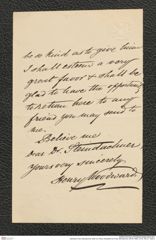 so kind as to give him
I shall esteem a very
great favor & shall be
glad to have the opportunity
to return here to any
friend you may send to
me.
Believe me
Dear Dr.
Yours very sincerely
Henry Woodward